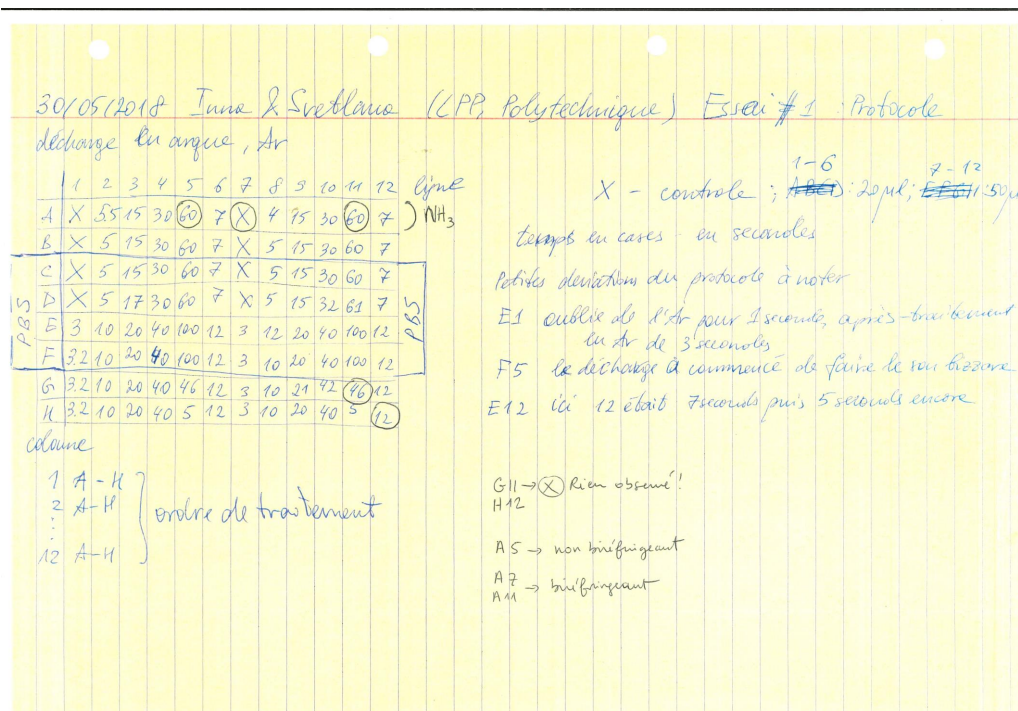 30/05/2018 Inna & Svetlana (LPP, Polytechnique) Essai #1 : Protocole
décharge en argue, Ar
1 2 3 4 5 6 7 8 9 10 11 12 ligne
A X 5.5 15 30 60 7 X 4 15 30 60 7 ) NH3
B X 5 15 30 60 7 X 5 15 30 60 7
C X 5 15 30 60 7 X 5 15 30 60 7
D X 5 17 30 60 7 X 5 15 32 61 7
E 3 10 20 40 100 12 3 12 20 40 100 12
F 3.2 10 20 40 100 12 3 10 20 40 100 12
G 3.2 10 20 40 46 12 3 10 21 42 46 12
H 3.2 10 20 40 5 12 3 10 20 40 5 12
PBS
PBS
colonne
1 A-H
2 A-H
⋮
12 A-H
ordre de traitement
1-6 7-12
X - controle ; ABCD : 20 µl ; EFGH : 50 µl
temps en cases - en secondes
Petites deviations du protocole à noter
E1 oublié de l'Ar pour 1 seconde, après-traitement
en Ar de 3 secondes
F5 la décharge a commencé de faire le son bizzare
E12 ici 12 était 7 seconds puis 5 seconds encore
G11 → X Rien observé !
H12
A5 → non biréfrigeant
A7
A11 → biréfringeant